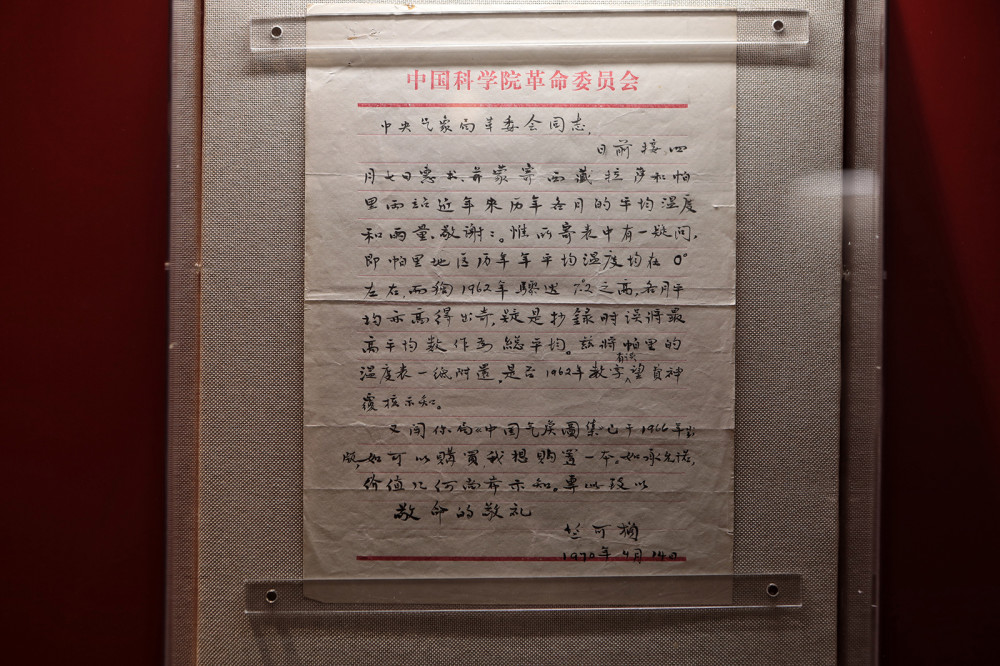 中国科学院革命委员会
中央气象局革委会同志，
日前接四
月七日惠书，并蒙寄西藏拉萨和帕
里两站近年来历年各月的平均温度
和雨量，敬谢：。惟所寄表中有一疑问，
即帕里地区历年年平均温度均在0°
左右，而独1962年骤述
之高，各月平
均亦高得出奇，疑是抄錄时误将最
高平均数作为總平均。兹将帕里的
温度表一纸附还，是否1962年数字有误望負神
覆核示知。
又闻你局《中国气候圖集》已于1966年出
版，如可以購買，我想购置一本。如承允诺，
价值几何尚希示知。専此致以
敬礼
竺可桢
1970年4月14日